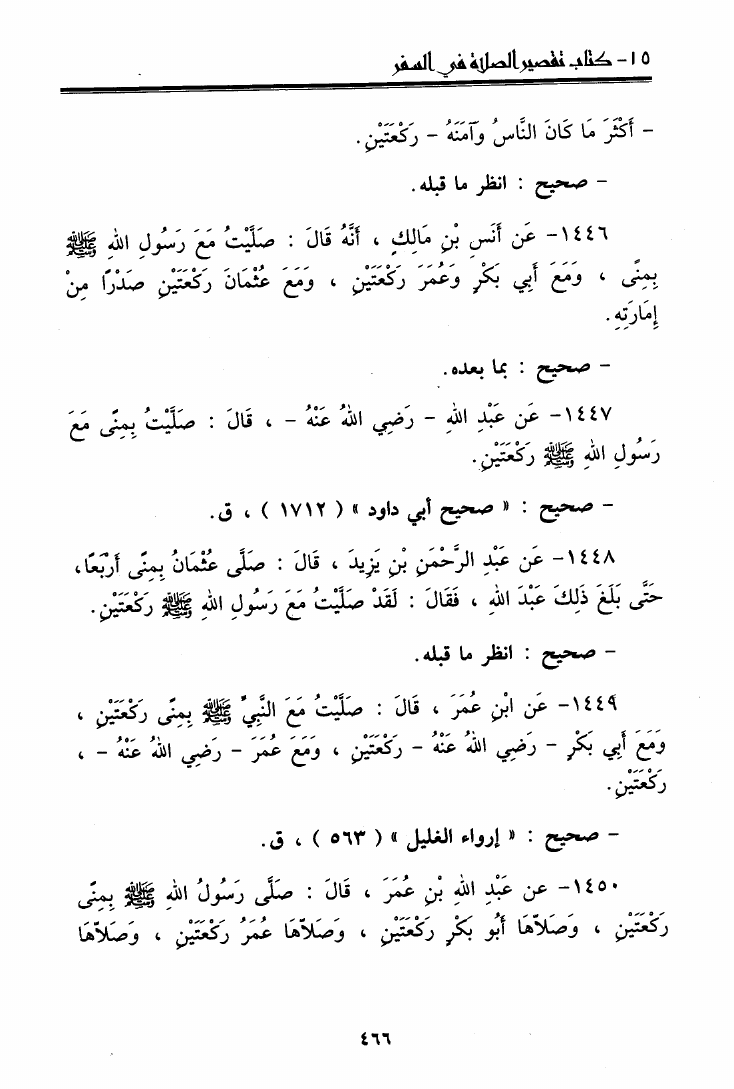 ١٥- كتاب تقصير الصلاة في السفر
- أَكْثَرَ مَا كَانَ النَّاسُ وَآمَنَهُ - رَكْعَتَيْنِ.
- صحيح : انظر ما قبله.
١٤٤٦- عَن أَنَسِ بْنِ مَالِكٍ ، أَنَّهُ قَالَ : صَلَّيْتُ مَعَ رَسُولِ اللهِ ﷺ
بِمِنًى ، وَمَعَ أَبِي بَكْرٍ وَعُمَرَ رَكْعَتَيْنِ ، وَمَعَ عُثْمَانَ رَكْعَتَيْنِ صَدْرًا مِنْ
إِمَارَتِهِ.
- صحيح : بما بعده.
١٤٤٧- عَن عَبْدِ اللهِ - رَضِي اللهُ عَنْهُ - ، قَالَ : صَلَّيْتُ بِمِنًى مَعَ
رَسُولِ اللهِ ﷺ رَكْعَتَيْنِ.
- صحيح : « صحيح أبي داود » ( ١٧١٢ ) ، ق.
١٤٤٨- عَن عَبْدِ الرَّحْمَنِ بْنِ يَزِيدَ ، قَالَ : صَلَّى عُثْمَانُ بِمِنًى أَرْبَعًا،
حَتَّى بَلَغَ ذَلِكَ عَبْدَ اللهِ ، فَقَالَ : لَقَدْ صَلَّيْتُ مَعَ رَسُولِ اللهِ ﷺ رَكْعَتَيْنِ.
- صحيح : انظر ما قبله.
١٤٤٩- عَن ابْنِ عُمَرَ ، قَالَ : صَلَّيْتُ مَعَ النَّبِيِّ ﷺ بِمِنًى رَكْعَتَيْنِ ،
وَمَعَ أَبِي بَكْرٍ - رَضِي اللهُ عَنْهُ - رَكْعَتَيْنِ ، وَمَعَ عُمَرَ - رَضِي اللهُ عَنْهُ - ،
رَكْعَتَيْنِ.
- صحيح : « إرواء الغليل » ( ٥٦٣ ) ، ق.
١٤٥٠- عن عَبْدِ اللهِ بْنِ عُمَرَ ، قَالَ : صَلَّى رَسُولُ اللهِ ﷺ بِمِنًى
رَكْعَتَيْنِ ، وَصَلاَّهَا أَبُو بَكْرٍ رَكْعَتَيْنِ ، وَصَلاَّهَا عُمَرُ رَكْعَتَيْنِ ، وَصَلاَّهَا
٤٦٦